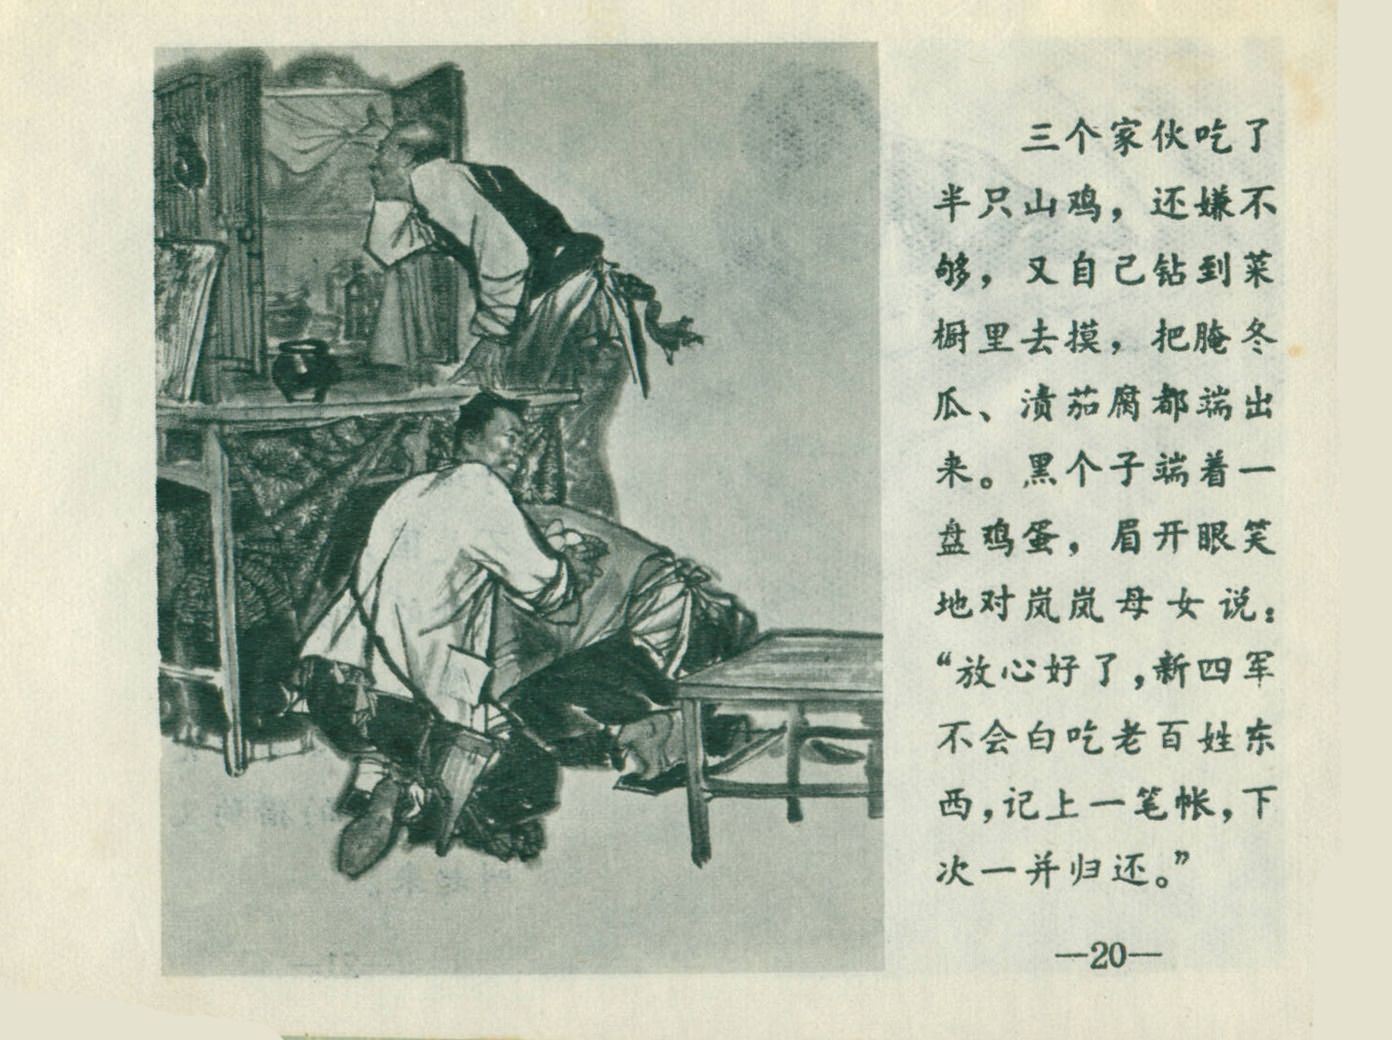 三个家伙吃了
半只山鸡，还嫌不
够，又自己钻到菜
橱里去摸，把腌冬
瓜、渍茄腐都端出
来。黑个子端着一
盘鸡蛋，眉开眼笑
地对岚岚母女说：
“放心好了，新四军
不会白吃老百姓东
西，记上一笔帐，下
次一并归还。”
—20—